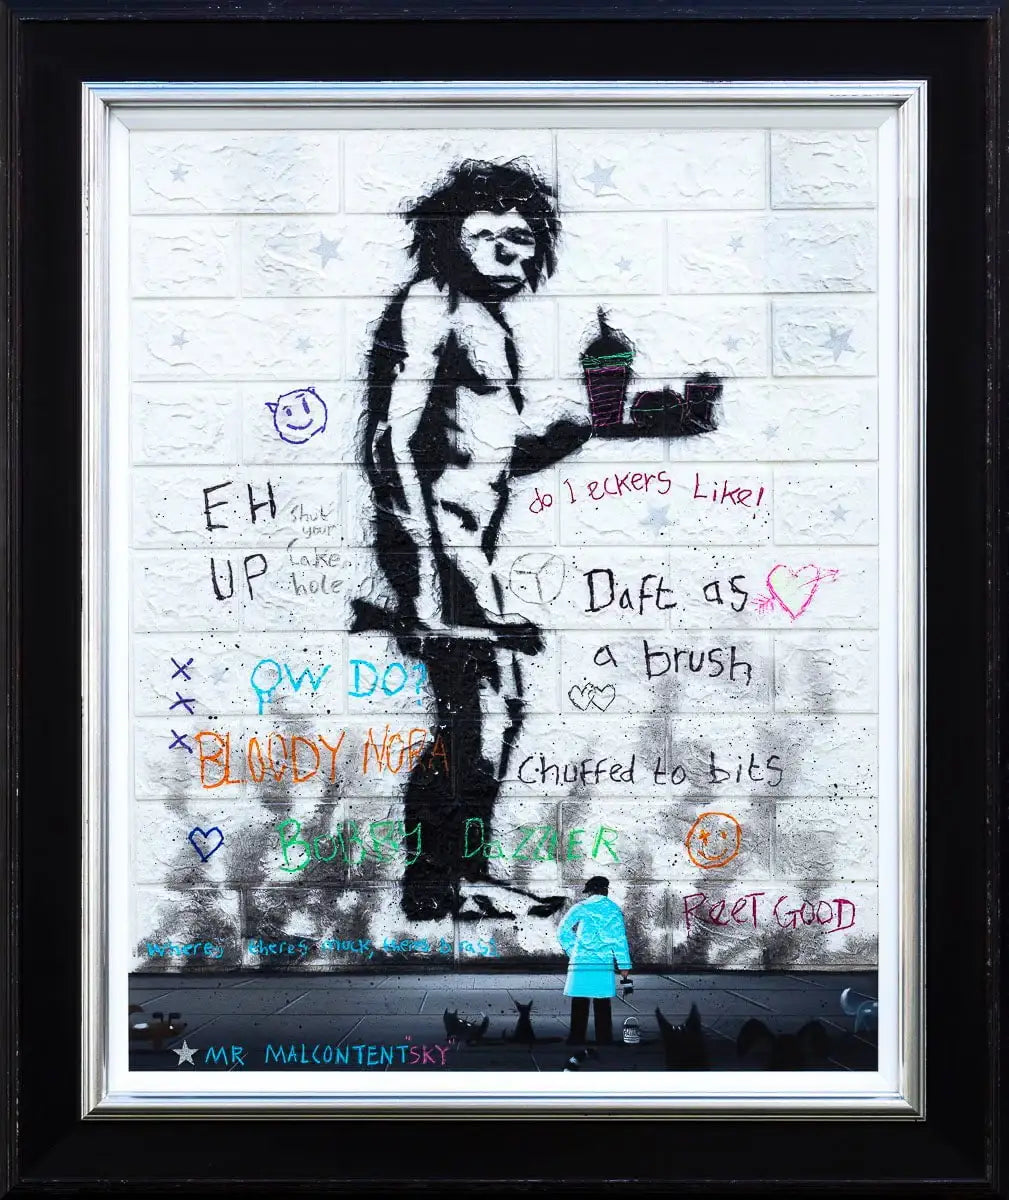 do I eckers Like!
EH
UP
Shut
your
cake
hole
Daft as
a brush
X
X
X
OW DO?
BLOODY NORA
Chuffed to bits
BOBBY DAZZLER
REET GOOD
theres muck, theres
MR MALCONTENT "SKY"